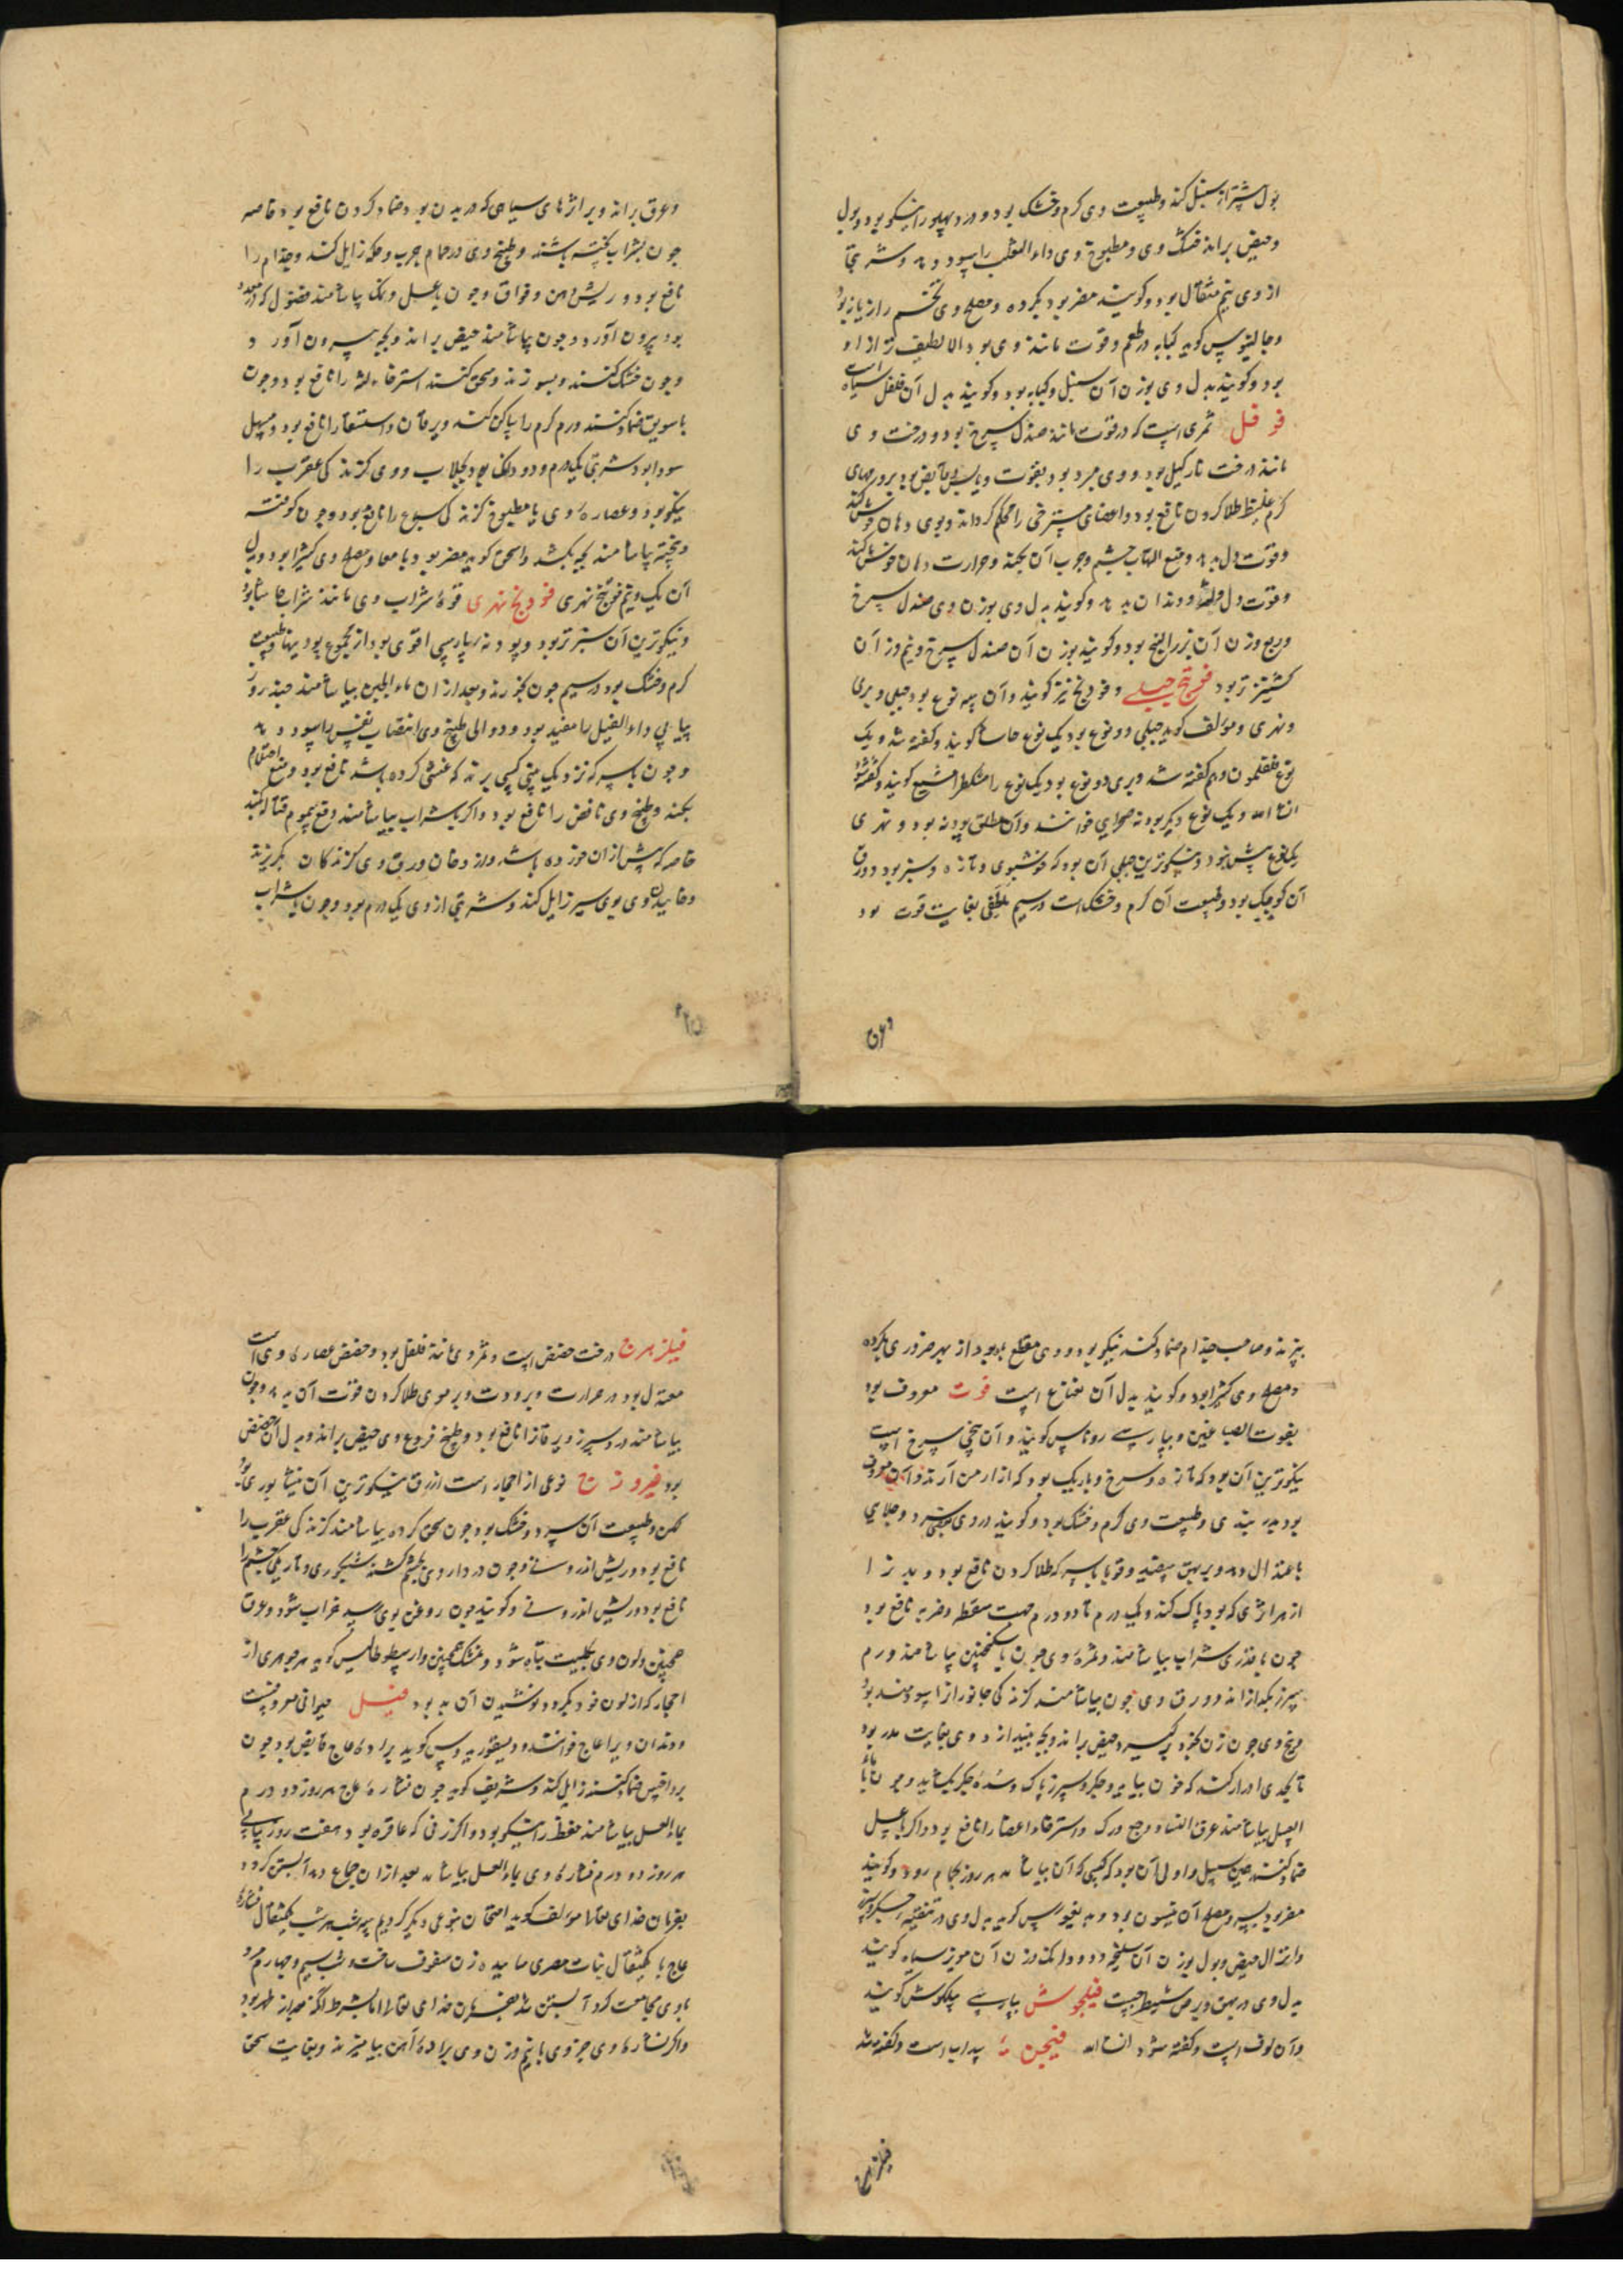 بول بیشتر از سنبل کند و طبیعت وی کرم و خشک بود و درد پهلو را نیکو بود و بول
و حیض براند خشک وی و مطبوخ وی داء الثعلب را سود دهد و شربتی
از وی نیم مثقال بود و کویند مضر بود بکرده و مصلح وی تخم رازیانه بود
و جالینوس کوید کبابه در طعم و قوت مانند وی بود الا لطیف تر از او
بود و کویند بدل وی بوزن آن سنبل و کبابه بود و کویند بدل آن فلفل سیاه است
فوفل ثمری است که در قوت مانند صندل سرخ بود و درخت وی
مانند درخت نارکیل بود و وی مبرد بود بقوت و قابض بود بر ورمهای
کرم غلیظ طلا کردن نافع بود و اعضای مسترخی را محکم کرداند و بوی دهان خوش کند
و قوت دل بدهد و منع التهاب چشم و جرب آن بکند و حرارت دهان خوش کند
و قوت دل و لثه و دندان بدهد و کویند بدل وی بوزن وی صندل سرخ
و ربع وزن آن بزر البنج بود و کویند بوزن آن صندل سرخ و نیم وزن آن
کشنیز تر بود فوتنج جبلی و فودنج نیز کویند و آن سه نوع بود جبلی و بری
و نهری و مؤلف کوید جبلی دو نوع بود یک نوع حاشا کویند و کفته شد و یک
نوع فلفلمون و هم کفته شد و بری دو نوع بود یک نوع را مشکطرامشیع کویند و کفته شود
انشاء الله و یک نوع دیکر بودنه صحرایی خوانند و آن مطلق بودنه بود و نهری
یک نوع پیش نبود و نیکوترین جبلی آن بود که خوشبوی و تازه و سبز بود و ورق
آن کوچک بود و طبیعت آن کرم و خشک است در سیم ملطفی بغایت قوت بود
وعرق
وعرق براند و بر اثرهای سیاهی که در بدن بود ضماد کردن نافع بود خاصه
چون بشراب پخته باشند و طبیخ وی در حمام جرب و حکه زایل کند و جذام را
نافع بود و ریش دهن و فواق و چون با عسل و نمک بیاشامند فضول که در معده
بود بیرون آورد و چون بیاشامند حیض براند و بچه بیرون آورد
و چون خشک کنند و بسوزند و سحق کنند استرخاء لثه را نافع بود و چون
با سویق ضماد کنند ورم کرم را ساکن کند و یرقان و استسقا را نافع بود و مسهل
سودا بود شربتی یک درم و دو دانک بود بجلاب و وی کزندکی عقرب را
نیکو بود و عصاره وی یا مطبوخ کزندکی سباع را نافع بود و چون کوفته
و پخته بیاشامند بچه بکشد و اسحق کوید مضر بود بامعا و مصلح وی کثیرا بود و بدل
آن یک و نیم فوتنج نهری فودنج نهری قوة شراب وی مانند شراب حاشا بود
و نیکوترین آن سبز تر بود و پودنه بپارسی اقوی بود از مجموع پودنیها طبیعت
کرم و خشک بود در سیم چون بخورند و بعد از آن ماء الجبن بیاشامند چند روز
پیاپی داء الفیل را مفید بود و دوالی طبیخ وی انتصاب نفس را سود دهد
و چون با سرکه نزدیک بینی کسی برند که غشی کرده باشد نافع بود و منع احتلام
بکند و طبیخ وی نافض را نافع بود و اکر با شراب بیاشامند دفع سموم قتاله بکند
خاصه که پیش از آن خورده باشد و از دخان ورق وی کزندکان بکریزند
و خاییدن وی بوی سیر زایل کند و شربتی از وی یک درم بود و چون با شراب
بپزند و صاحب جذام ضماد کند نیکو بود و وی مقطع باه بود از بهر ضروری بکرده
و مصلح وی کثیرا بود و کویند بدل آن نعناع است فوت معروف بود
بفوت الصباغین و بپارسی روناس کویند و آن بیخی سرخ است
نیکوترین آن بود که تازه و سرخ و باریک بود که از ارمن آرند و آن معروف
بود بدر بندی و طبیعت وی کرم و خشک بود و کویند در وی تسخین و جلایی
باعتدال دهد و بر بهق سفید و قوبا با سرکه طلا کردن نافع بود و بدن را
از هر اثری که بود پاک کند و یک درم تا دو درم جهت سقطه و ضربه نافع بود
چون با قدری شراب بیاشامند و ثمرة وی چون با سکنجبین بیاشامند ورم
سپرز بکدازاند و ورق وی چون بیاشامند کزندکی جانوران را سودمند بود
و بیخ وی چون زن بخود برکیرد حیض براند و بچه بیندازد و وی بغایت مدر بود
تا بحدی ادرار کند که خون بیاید و جکر و سپرز پاک و سدة جکر بکشاید و چون با ماء
العسل بیاشامند عرق النسا و وجع ورک و استرخاء اعضا را نافع بود و اکر با عسل
ضماد کنند همین سبیل و اولی آن بود که کسی که آن بیاشامد هر روز بحمام رود و کویند
مضر بود بسر و مصلح آن انیسون بود و دیسقوریدوس کوید بدل وی در تنقیه جکر و سپرز
و انزال حیض و بول بوزن آن سلیخه و دو دانک وزن آن مویز سیاه کویند
بدل وی در بهق و برص شیطرج است فیلجوش بپارسی پیلکوش کویند
و آن لوف است و کفته شود انشاء الله فیجن سداب است و کفته شد
فیلزهرج
فیلزهرج درخت حضض است و ثمر وی مانند فلفل بود و حضض عصاره وی است
معتدل بود در حرارت و برودت و بر موی طلا کردن قوت آن بدهد و چون
بیاشامند درد سپرز و یرقان را نافع بود و طبیخ فروع وی حیض براند و بدل آن حضض
بود فیروزج نوعی از احجار است ازرق نیکوترین آن نیشابوری بود
کهن و طبیعت آن سرد و خشک بود چون سحق کرده بیاشامند کزندکی عقرب را
نافع بود و ریش اندرونی و چون در داروی چشم کنند شبکوری و تاریکی چشم را
نافع بود و ریش اندرونی و کویند چون روغن بوی رسد خراب شود و عرق
همچنین و لون وی بکلیت تباه شود و مشک همچنین و ارسطوطالیس کوید هر جوهری از
احجار که از لون خود بکردد پوشیدن آن بد بود فیل حیوانی معروفست
و دندان ویرا عاج خوانند و دیسقوریدوس کوید براده عاج قابض بود چون
بر داحس ضماد کنند زایل کند و شریف کوید چون نشارة عاج هر روز دو درم
بماء العسل بیاشامند حفظ را نیکو بود و اکر زنی که عاقره بود هفت روز پیاپی
هر روز دو درم نشاره وی بماء العسل بیاشامد بعد از آن جماع دهد آبستن کردد
بفرمان خدای تعالی مؤلف کوید امتحان بنوعی دیکر کردیم سه شب هر شب یکمثقال نشاره
عاج با یکمثقال نبات مصری ساییده زن سفوف ساخت و شب سیم و چهارم مرد
با وی مجامعت کرد آبستن شد بفرمان خدای تعالی اما بشرط آنکه بعد از طهر بود
و اکر نشاره وی جزوی با نیم وزن وی براده آهن بیامیزند و بغایت سحق